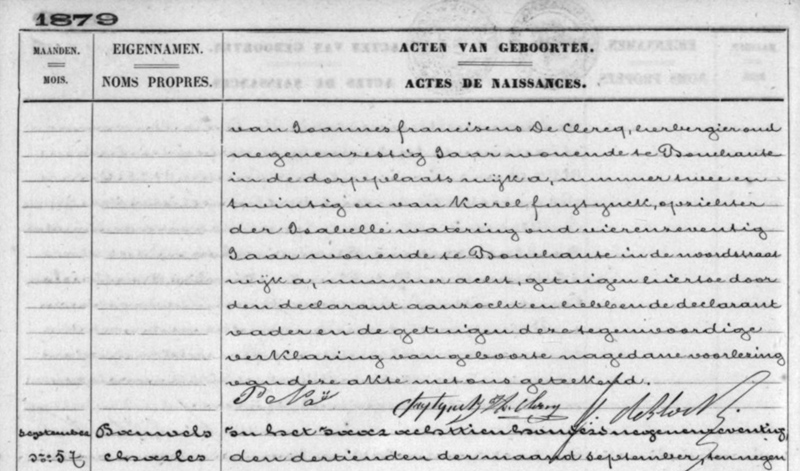 1879
MAANDEN.
MOIS.
EIGENNAMEN.
NOMS PROPRES.
ACTEN VAN GEBOORTEN.
ACTES DE NAISSANCES.
van Joannes franciscus De Clercq, herbergier oud
negenenzestig Jaar wonende te Bouchaute
in de dorpeplaats wijk a, nummer twee en
twintig en van Karel fuytynck, opzichter
der Isabelle watering oud vierenzeventig
Jaar wonende te Bouchaute in de noordstraat
wijk a, nummer acht, getuigen hiertoe door
den declarant aanzocht en hebben de declarant
vader en de getuigen deze tegenwoordige
verklaring van geboorte nagedane voorlezing
van deze akte met ons geteekend.
fuytynck
september
N: 57
Bauwels
charles
In het Jaar achttien honderd negenenzeventig,
den dertienden der maand september, ten negen